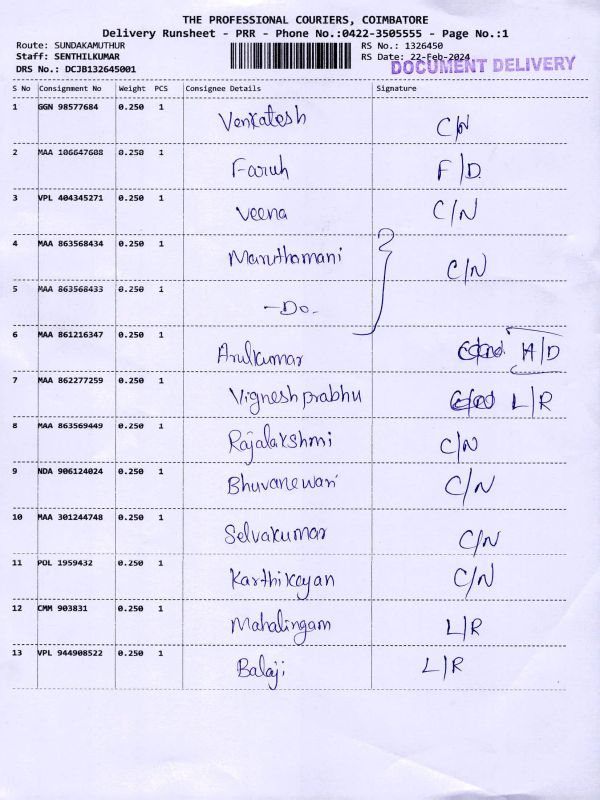 THE PROFESSIONAL COURIERS, COIMBATORE
Delivery Runsheet - PRR - Phone No.:0422-3505555 - Page No.:1
Route: SUNDAKAMUTHUR RS No.: 1326450
Staff: SENTHILKUMAR RS Date: 22-Feb-2024
DRS No.: DCJB132645001 DOCUMENT DELIVERY
S No Consignment No Weight PCS Consignee Details Signature
1 GGN 98577684 0.250 1 Venkatesh C/N
2 MAA 106647608 0.250 1 Faruh F/D.
3 VPL 404345271 0.250 1 Veena C/N
4 MAA 863568434 0.250 1 Maruthamani C/N
5 MAA 863568433 0.250 1 -Do-
6 MAA 861216347 0.250 1 Arulkumar H/D
7 MAA 862277259 0.250 1 Vignesh prabhu L/R
8 MAA 863569449 0.250 1 Rajalakshmi C/N
9 NDA 906124024 0.250 1 Bhuvanewari C/N
10 MAA 301244748 0.250 1 Selvakumar C/N
11 POL 1959432 0.250 1 Karthikeyan C/N
12 CMM 903831 0.250 1 Mahalingam L/R
13 VPL 944908522 0.250 1 Balaji L/R